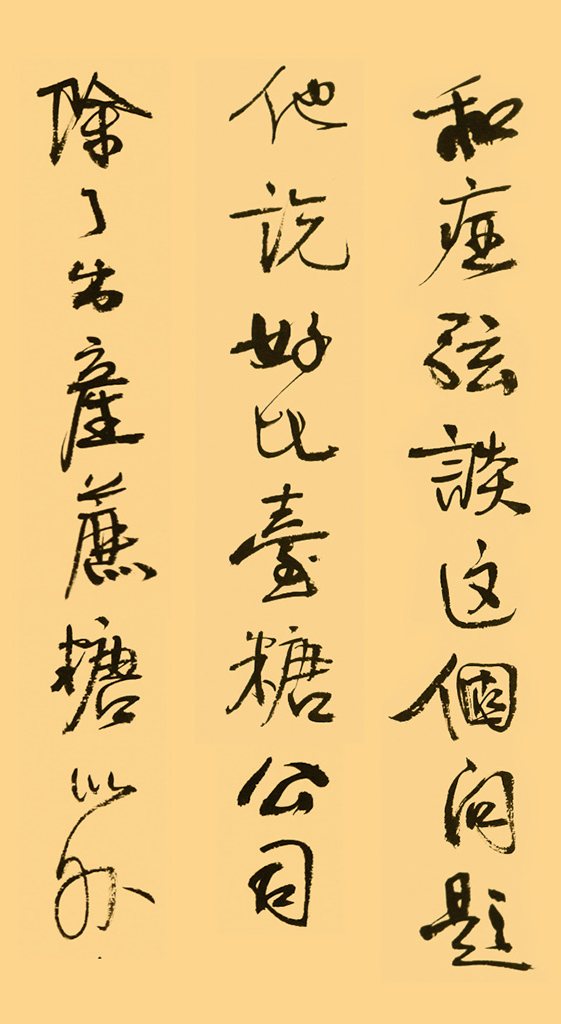 和痖弦談这個问題
他説好比臺糖公司
除了生產蔗糖以外